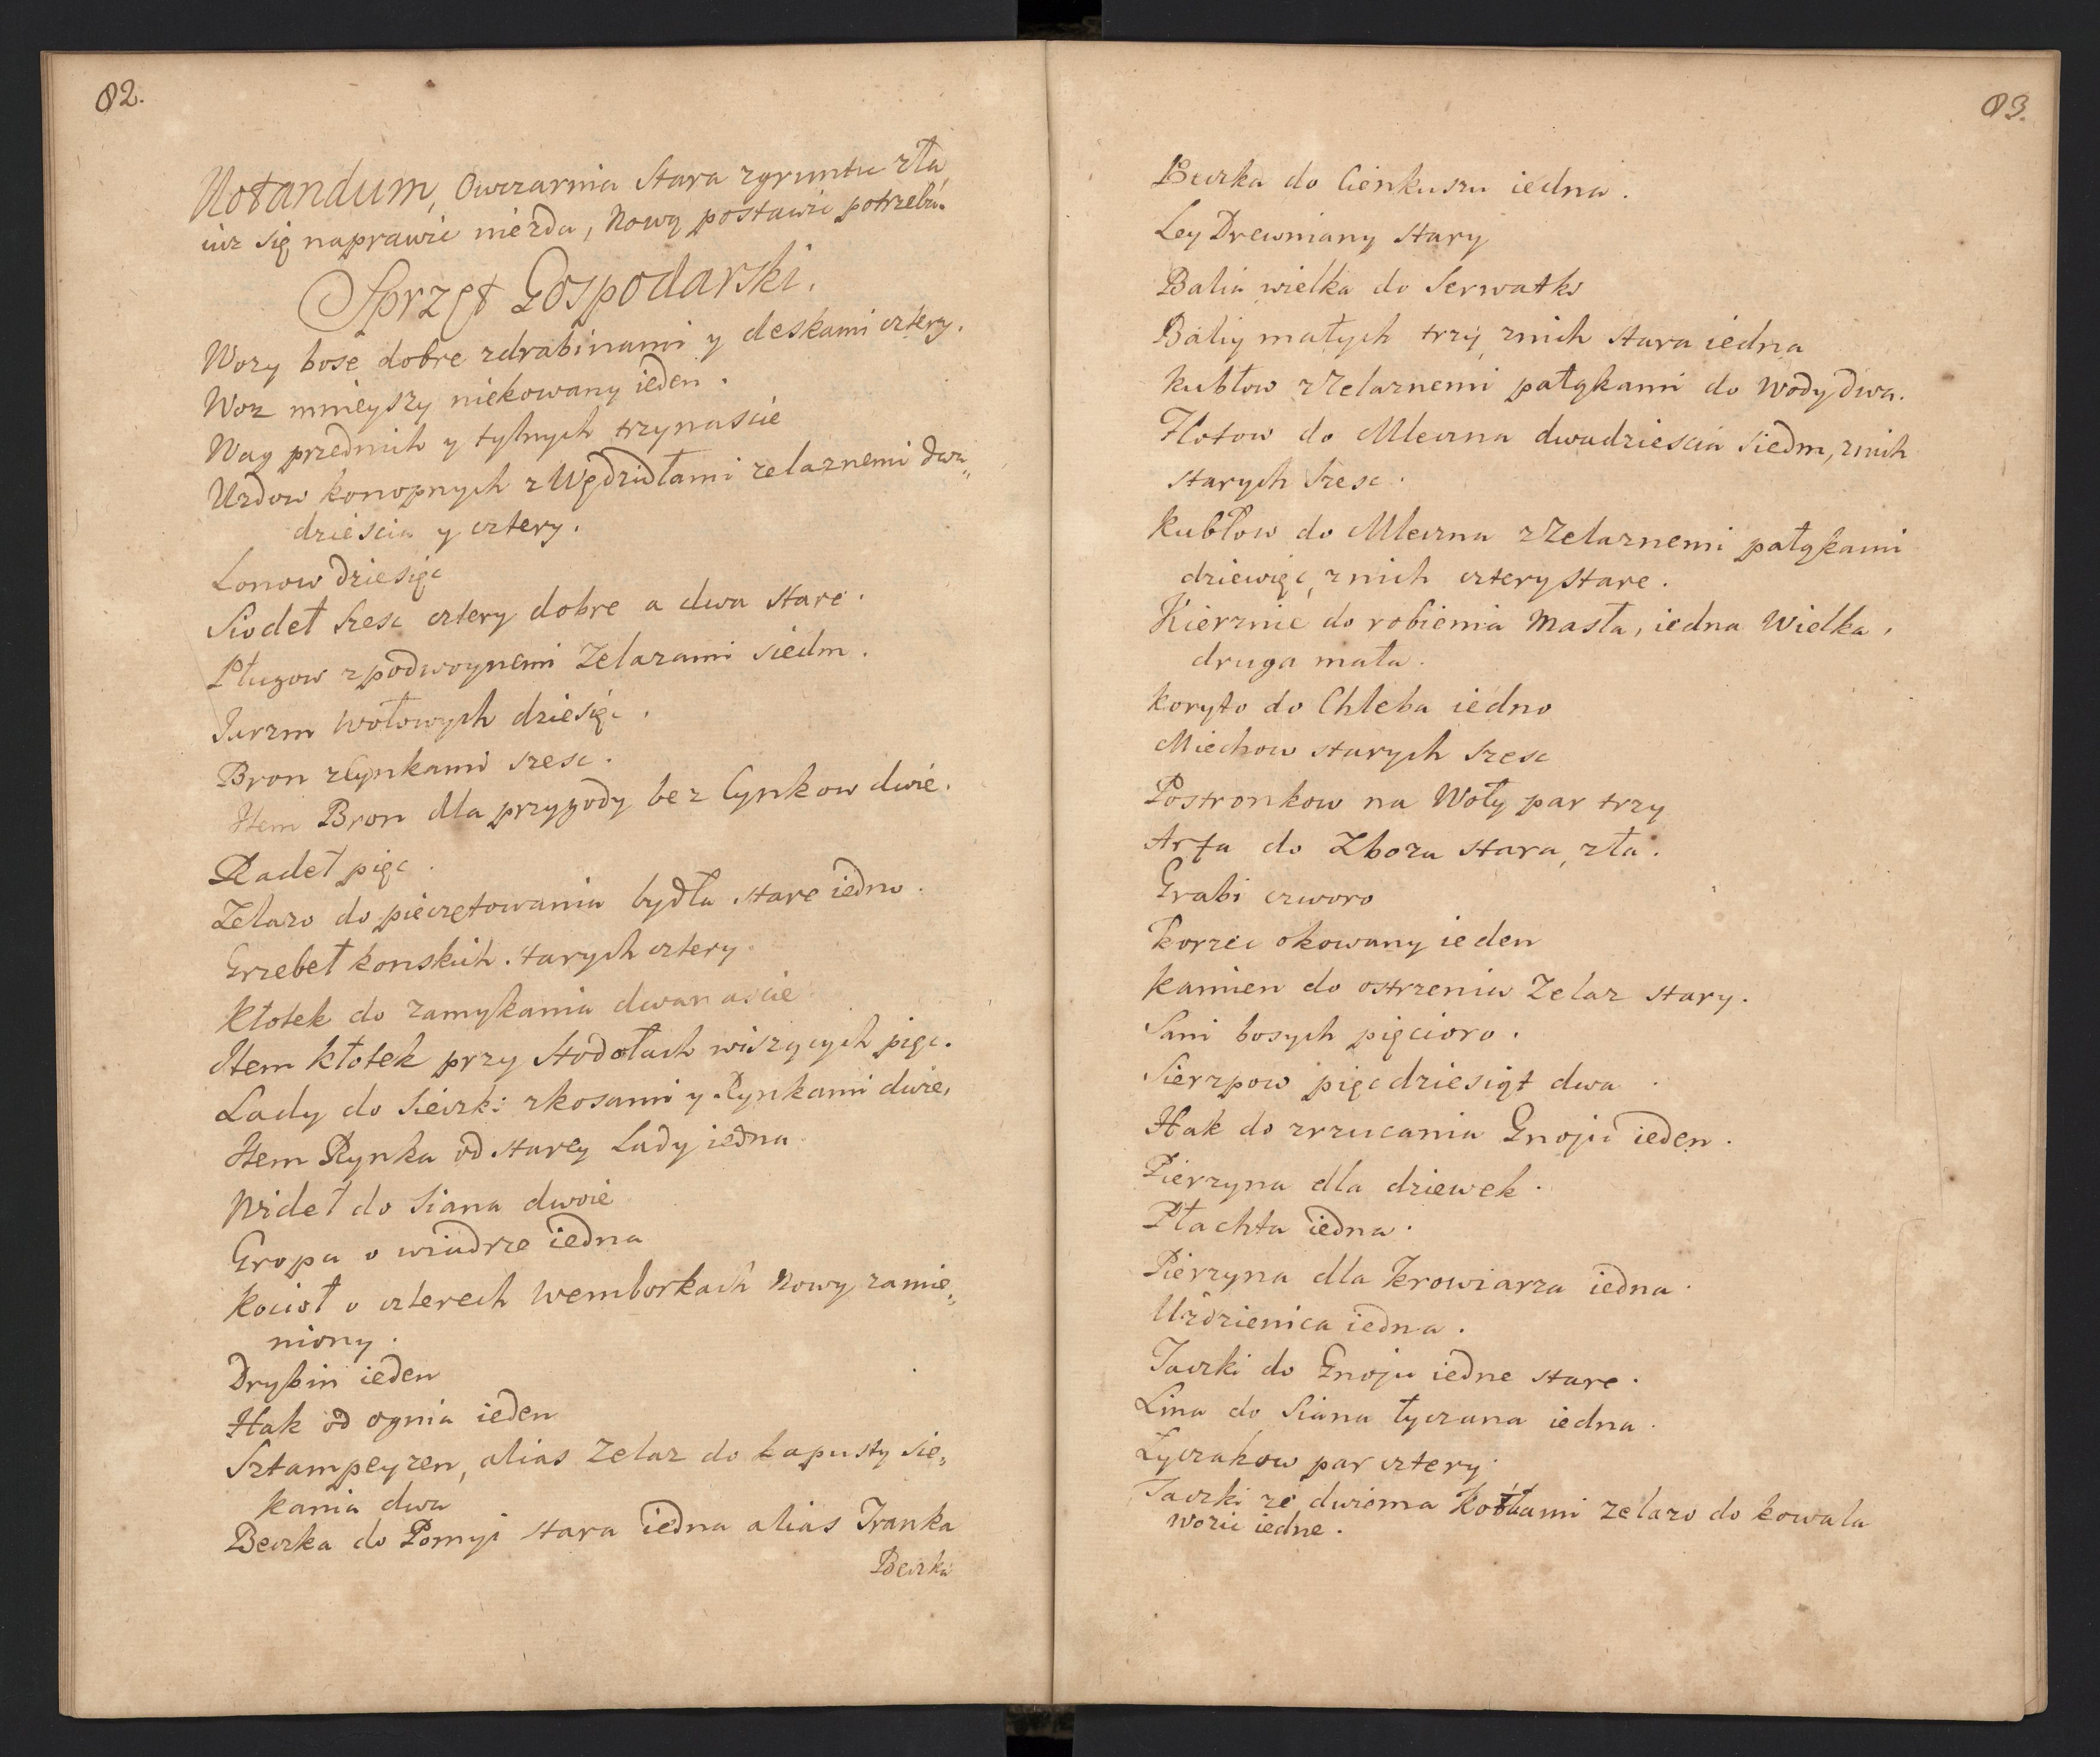 82.
Notandum, Owczarnia Stara zgruntu zła
iuz się naprawic niezda, Nową postawic potrzeba.
Sprzęt Gospodarski.
Wozy bose dobre zdrabinami y deskami cztery.
Woz mnieyszy niekowany ieden.
Wag przednich y tylnych trzynascie
Uzdow konopnych z Wędzidłami zelaznemi dwa„
dziescia y cztery.
Lonow dziesięc
Siodeł szesc cztery dobre a dwa stare.
Pługow zpodwoynemi Zelazami siedm.
Jarzm wołowych dziesięc.
Bron zCynkami szesc.
Item Bron dla przygody bez Cynkow dwie.
Radeł pięc.
Zelazo do pieczętowania bydła stare iedno.
Grzebeł konskich starych cztery.
Kłotek do zamykania dwanascie
Item kłotek przy Stodołach wiszących pięc.
Lady do Sieczki zkosami y Rynkami dwie,
Item Rynka od starey Lady iedna
Wideł do Siana dwoie
Gropa o wiadrze iedna
Kocioł o czterech Wemborkach Nowy zamie„
niony.
Drybin ieden
Hak od ognia ieden
Sztampeyzen, alias Zelaz do kapusty sie„
kania dwa
Beczka do Pomyi stara iedna alias Tranka
Beczka
83.
Beczka do Cienkuszu iedna.
Ley Drewniany stary
Balia wielka do Serwatki
Baliy małych trzy, znich stara iedna
Kubłow zZelaznemi pałąkami do Wody dwa.
Flotow do Mleczna dwadziescia siedm, znich
starych szesc.
Kubłow do Mleczna zZelaznemi pałąkami
dziewięc, znich cztery stare.
Kierznie do robienia Masła, iedna Wielka,
druga mała.
Koryto do Chleba iedno
Miechow starych szesc
Postronkow na Woły par trzy
Arfa do Zboza stara, zła.
Grabi czworo
Korzec okowany ieden
Kamien do ostrzeniu Zelaz stary.
Sani bosych pięcioro.
Sierzpow pięcdziesiąt dwa.
Hak do zrzucania Gnoju ieden.
Pierzyna dla dziewek.
Płachta iedna.
Pierzyna dla Krowiarza iedna.
Uzdzienica iedna.
Taczki do Gnoju iedne stare.
Lina do Siana łyczana iedna.
Łyczakow par cztery.
Taczki ze dwiema Kołkami zelazo do kowala
wozic iedne.